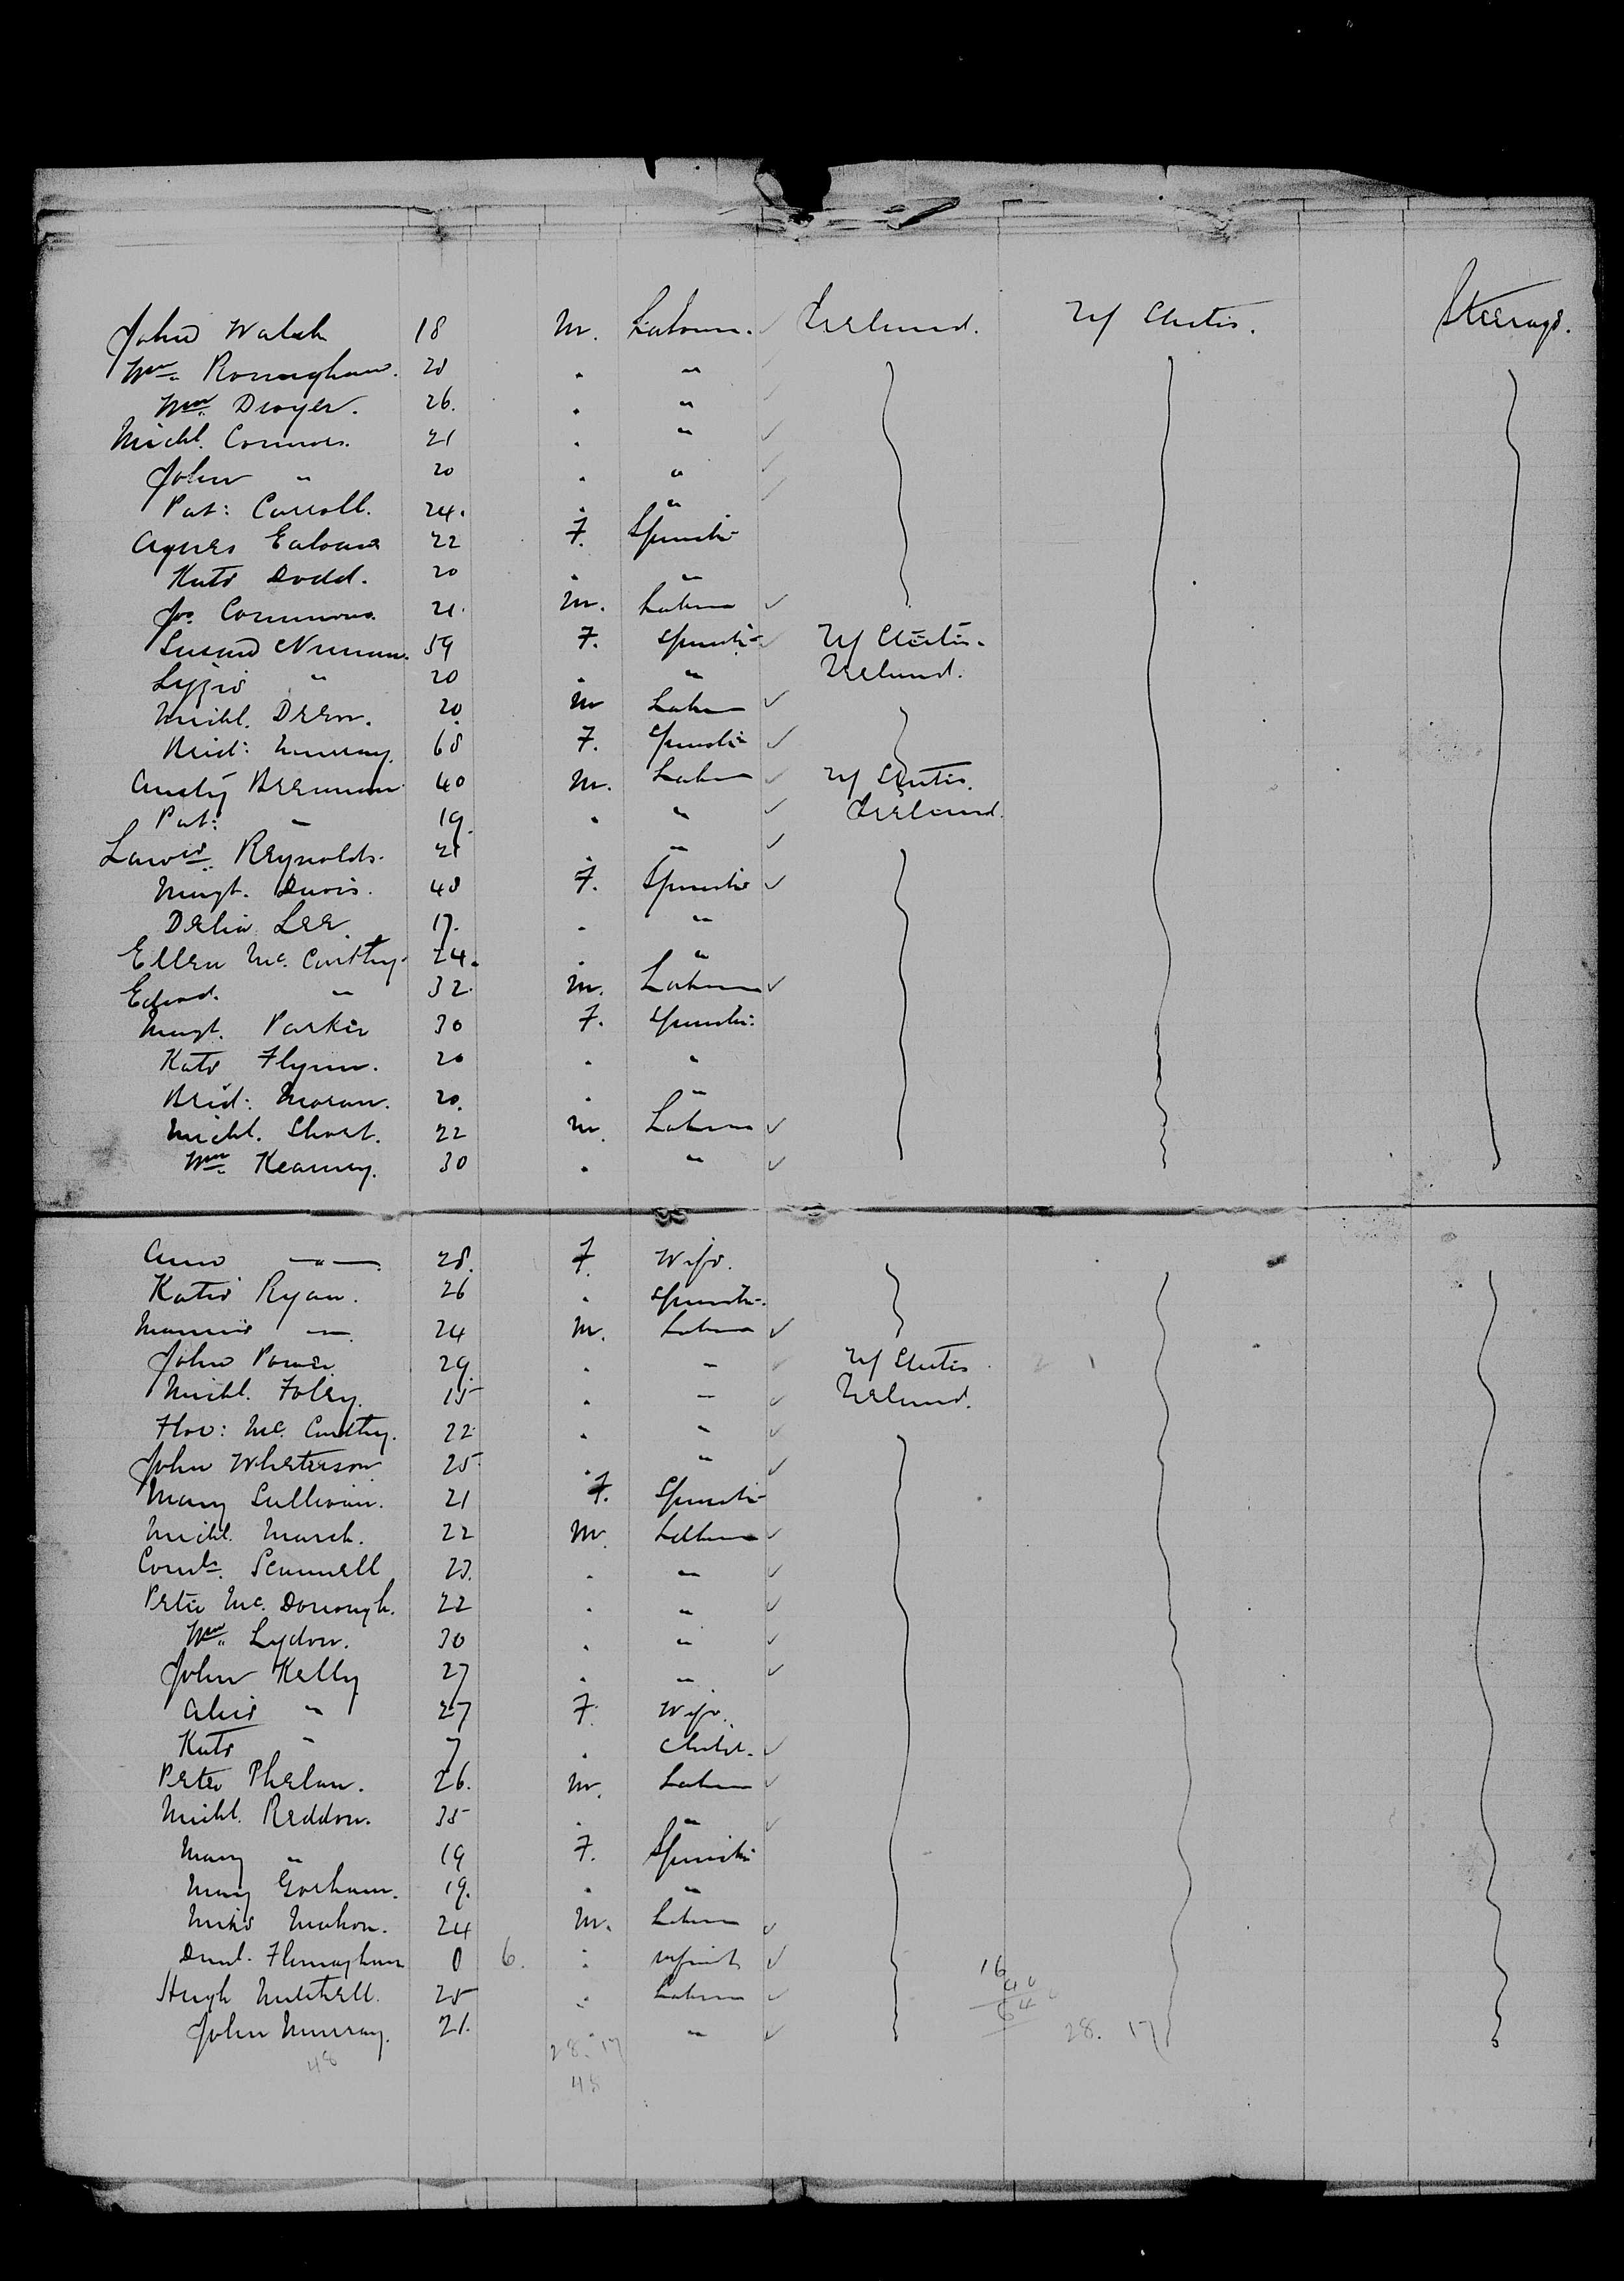 John Walsh 18 M. Labourer. ✓ Ireland. U/ States. Steerage.
Wm. Roningham. 28 . "
Wm. Dwyer. 26. . "
Michl. Connors. 21 . " ✓
John " 20 . " ✓
Pat: Carroll. 24. . " ✓
Agnes 22 F. Spinster
Kate Dodd. 20 . "
Jos. Commons. 21. M. Labourer ✓
Susan 59 F. Spinster ✓ U/ States.
Lizzie " 20 . " Ireland.
Michl. Drew. 20 M Labourer ✓
Brid: Murray. 68 F. Spinster ✓
Austin Brennan 40 M. Labourer ✓ U/ States.
Pat: " 19. . " ✓ Ireland.
Lawce. Reynolds. 21 . " ✓
Margt. Davis. 48 F. Spinster ✓
Delia Lee 17. . "
Ellen Mc. Carthy. 24. . "
Edwd. " 32. M. Labourer ✓
Margt. Parker 30 F. Spinster
Kate Flynn. 20 . "
Brid: Moran. 20. . "
Michl. Short. 22 M. Labourer ✓
Wm. Kearney. 30 . " ✓
Anne — " — 28. F. Wife.
Katie Ryan. 26 . Spinster.
" 24 M. Labourer ✓
John Power 29. . " ✓ U/ States
Michl. Foley. 15 . " ✓ Ireland.
Flor: Mc. Carthy. 22 . " ✓
John Wheterson 25 . " ✓
Mary Sullivan. 21 F. Spinster
Michl. March. 22 M. Labourer ✓
Corns. Scannell 23. . " ✓
Peter Mc. Donough. 22 . " ✓
Wm. Lydon. 30 . " ✓
John Kelly 27 . " ✓
Alice " 27 F. Wife.
Kate " 7 . Child. ✓
Peter Phelan. 26. M. Labourer ✓
Michl. Reddon. 35 . " ✓
Mary " 19 F. Spinster
Mary Gorham. 19. . "
Mike Mahon. 24 M. Labourer ✓
Danl. 0 6. . Infant ✓
Hugh Mitchell. 25 . Labourer ✓ 16
John Murray. 21. . " ✓ 64 28. 17
48 28. 17
48